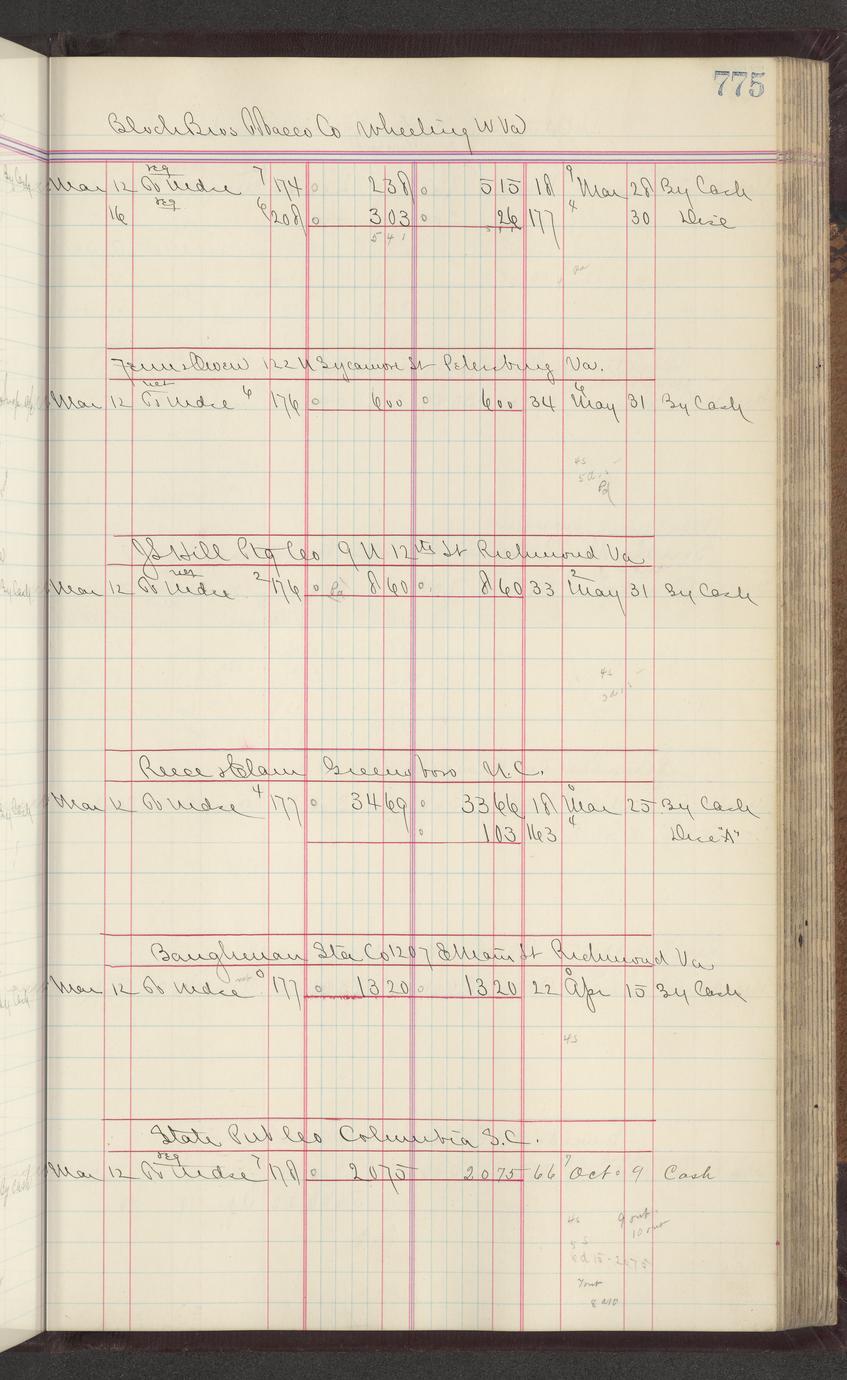 775
Bloch Bros Tobacco Co Wheeling W Va
Mar 12 To Mdse 7 174 238 515 18 9 Mar 28 By Cash
16 6 208 303 26 177 4 30 Disc
541
122 N Sycamore St Petersburg Va.
Mar 12 To Mdse 6 176 600 600 34 6 May 31 By Cash
4s
Pd
JL Hill Ptg Co 9 N 12th St Richmond Va
Mar 12 To Mdse 2 176 860 860 33 2 May 31 By Cash
4s
Reece & Elam Greensboro N.C.
Mar 12 To Mdse 4 177 3469 3366 18 0 Mar 25 By Cash
103 163 4 Disc "A"
Baughman Sta Co 1207 E Main St Richmond Va
Mar 12 To Mdse 0 177 1320 1320 22 0 Apr 15 By Cash
4s
State Pub Co Columbia S.C.
Mar 12 To Mdse 7 178 2075 2075 66 7 Oct 9 Cash
4s 9 out
10 out
5s
15-2075
7 out
8